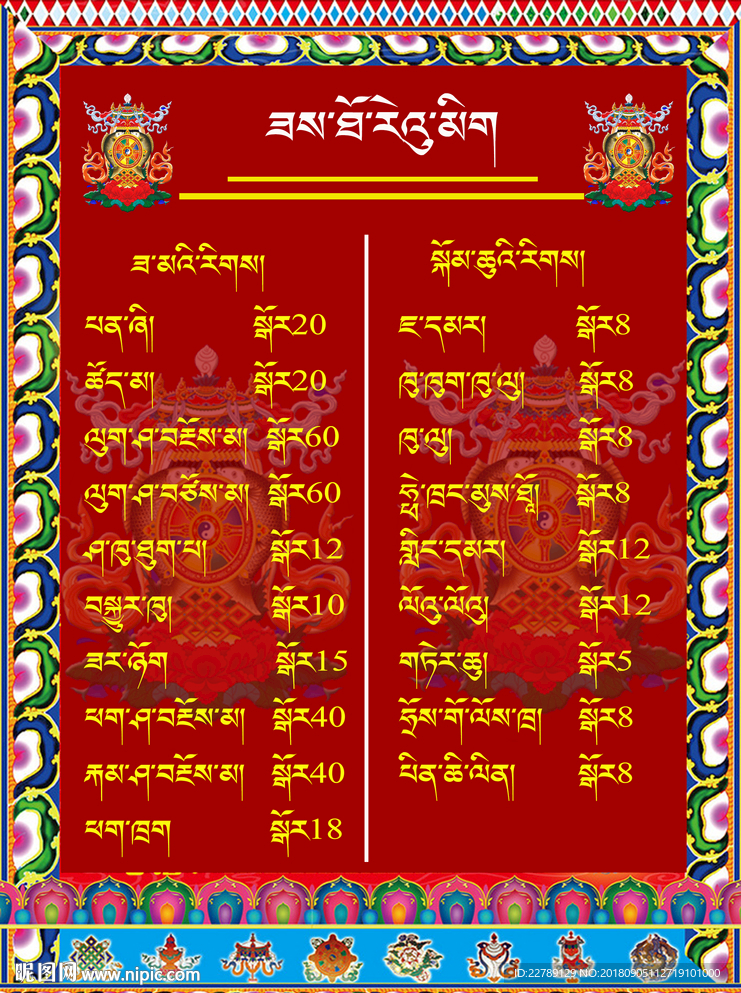 ཟས་ཐོ་རེའུ་མིག
ཟ་མའི་རིགས།
པན་ཞི། སྒོར20
ཚོད་མ། སྒོར20
ལུག་ཤ་བརྔོས་མ། སྒོར60
ལུག་ཤ་བཙོས་མ། སྒོར60
ཤ་ཁུ་ཐུག་པ། སྒོར12
བསྐྱུར་ཁུ། སྒོར10
ཟར་ཉོག སྒོར15
ཕག་ཤ་བརྔོས་མ། སྒོར40
རྐམ་ཤ་བརྔོས་མ། སྒོར40
ཕག་ཁྲག སྒོར18
སྐོམ་ཆུའི་རིགས།
ཇ་དམར། སྒོར8
ཁུ་ཁུག་ཁུ་ལུ། སྒོར8
ཁུ་ལུ། སྒོར8
སྒོར8
གླིང་དམར། སྒོར12
ལོའུ་ལོའུ། སྒོར12
གཏེར་ཆུ། སྒོར5
ཧྲོས་གོ་ལོས་ཁྲ། སྒོར8
པིན་ཆི་ལིན། སྒོར8
昵图网 www.nipic.com
ID:22789129 NO:20180905112719101000